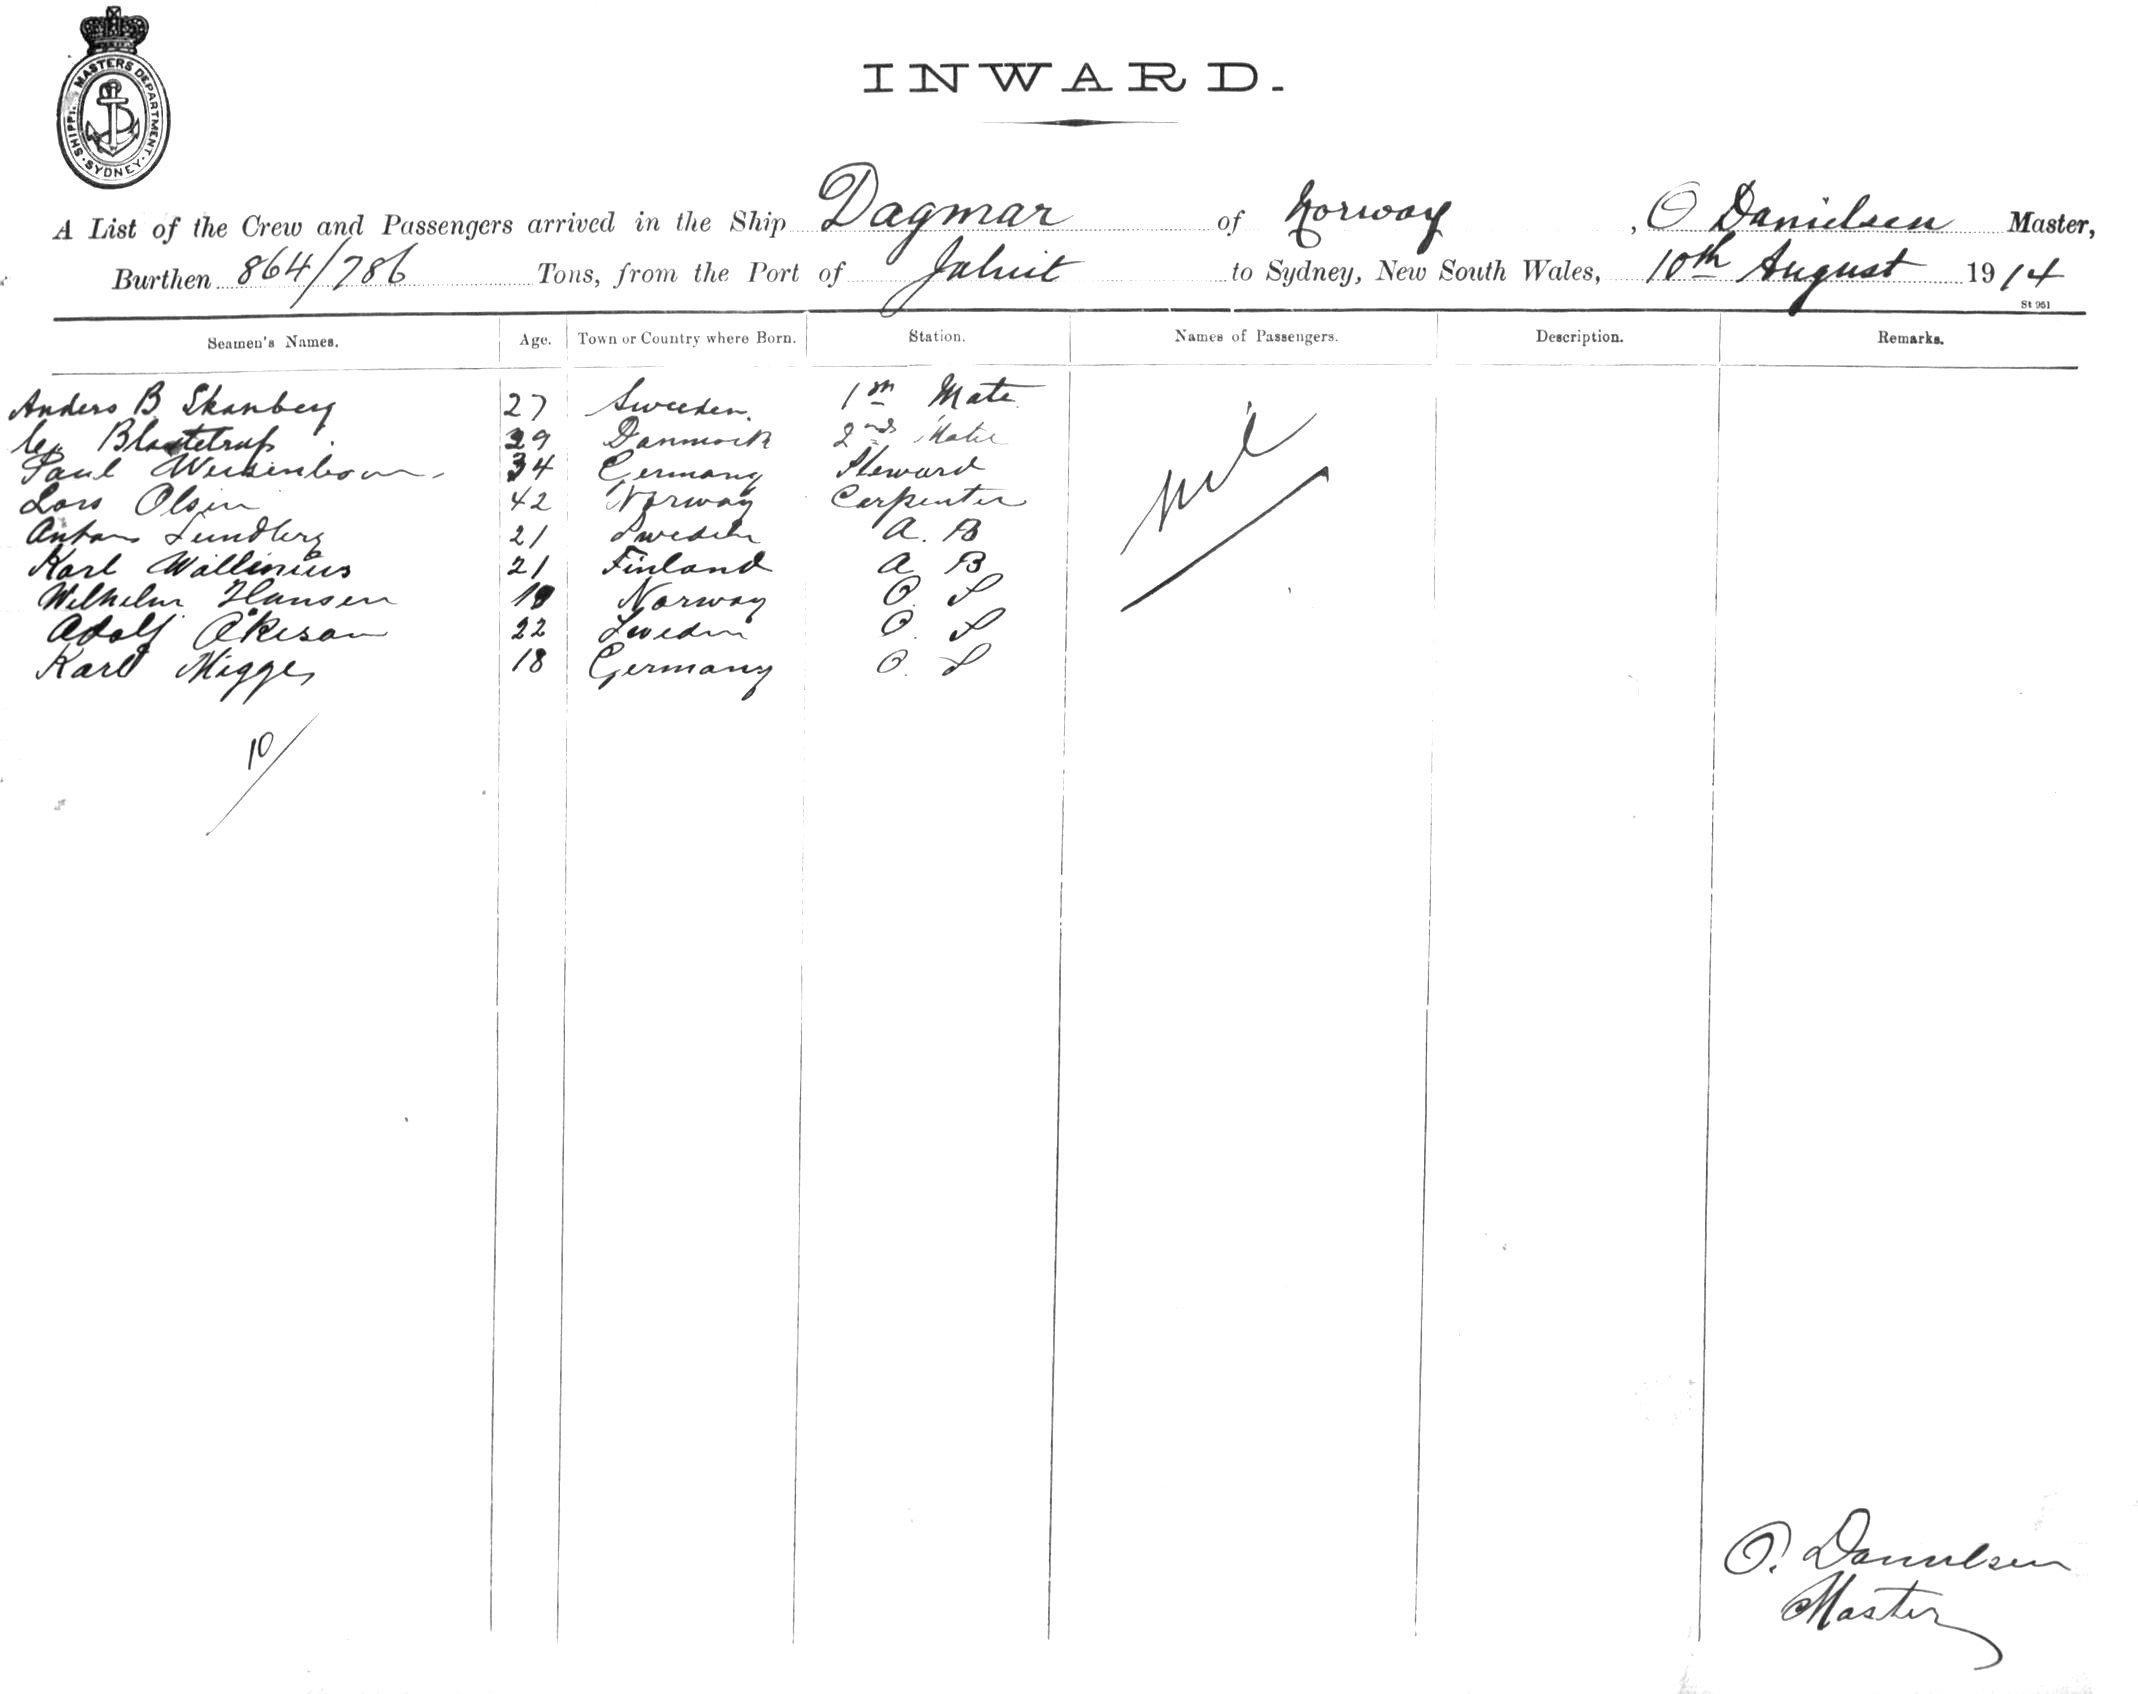 SHIPPING MASTERS DEPARTMENT · SYDNEY ·
INWARD.
A List of the Crew and Passengers arrived in the Ship Dagmar of Norway, O Danielsen Master,
Burthen 864/786 Tons, from the Port of Jaluit to Sydney, New South Wales, 10th August 1914
St 951
Seamen's Names. Age. Town or Country where Born. Station. Names of Passengers. Description. Remarks.
Anders B Skanberg 27 Sweden. 1st Mate nil
29 Danmark 2nd Mate
Paul 34 Germany Steward
Lars Olsen 42 Norway Carpenter
Anton Lundberg 21 Sweden A. B
Karl Wallinius 21 Finland A B
Wilhelm Hansen Norway O. S
Adolf Åkeson 22 Sweden O. S
Karl Migge 18 Germany O. S
10/
O. Danielsen
Master